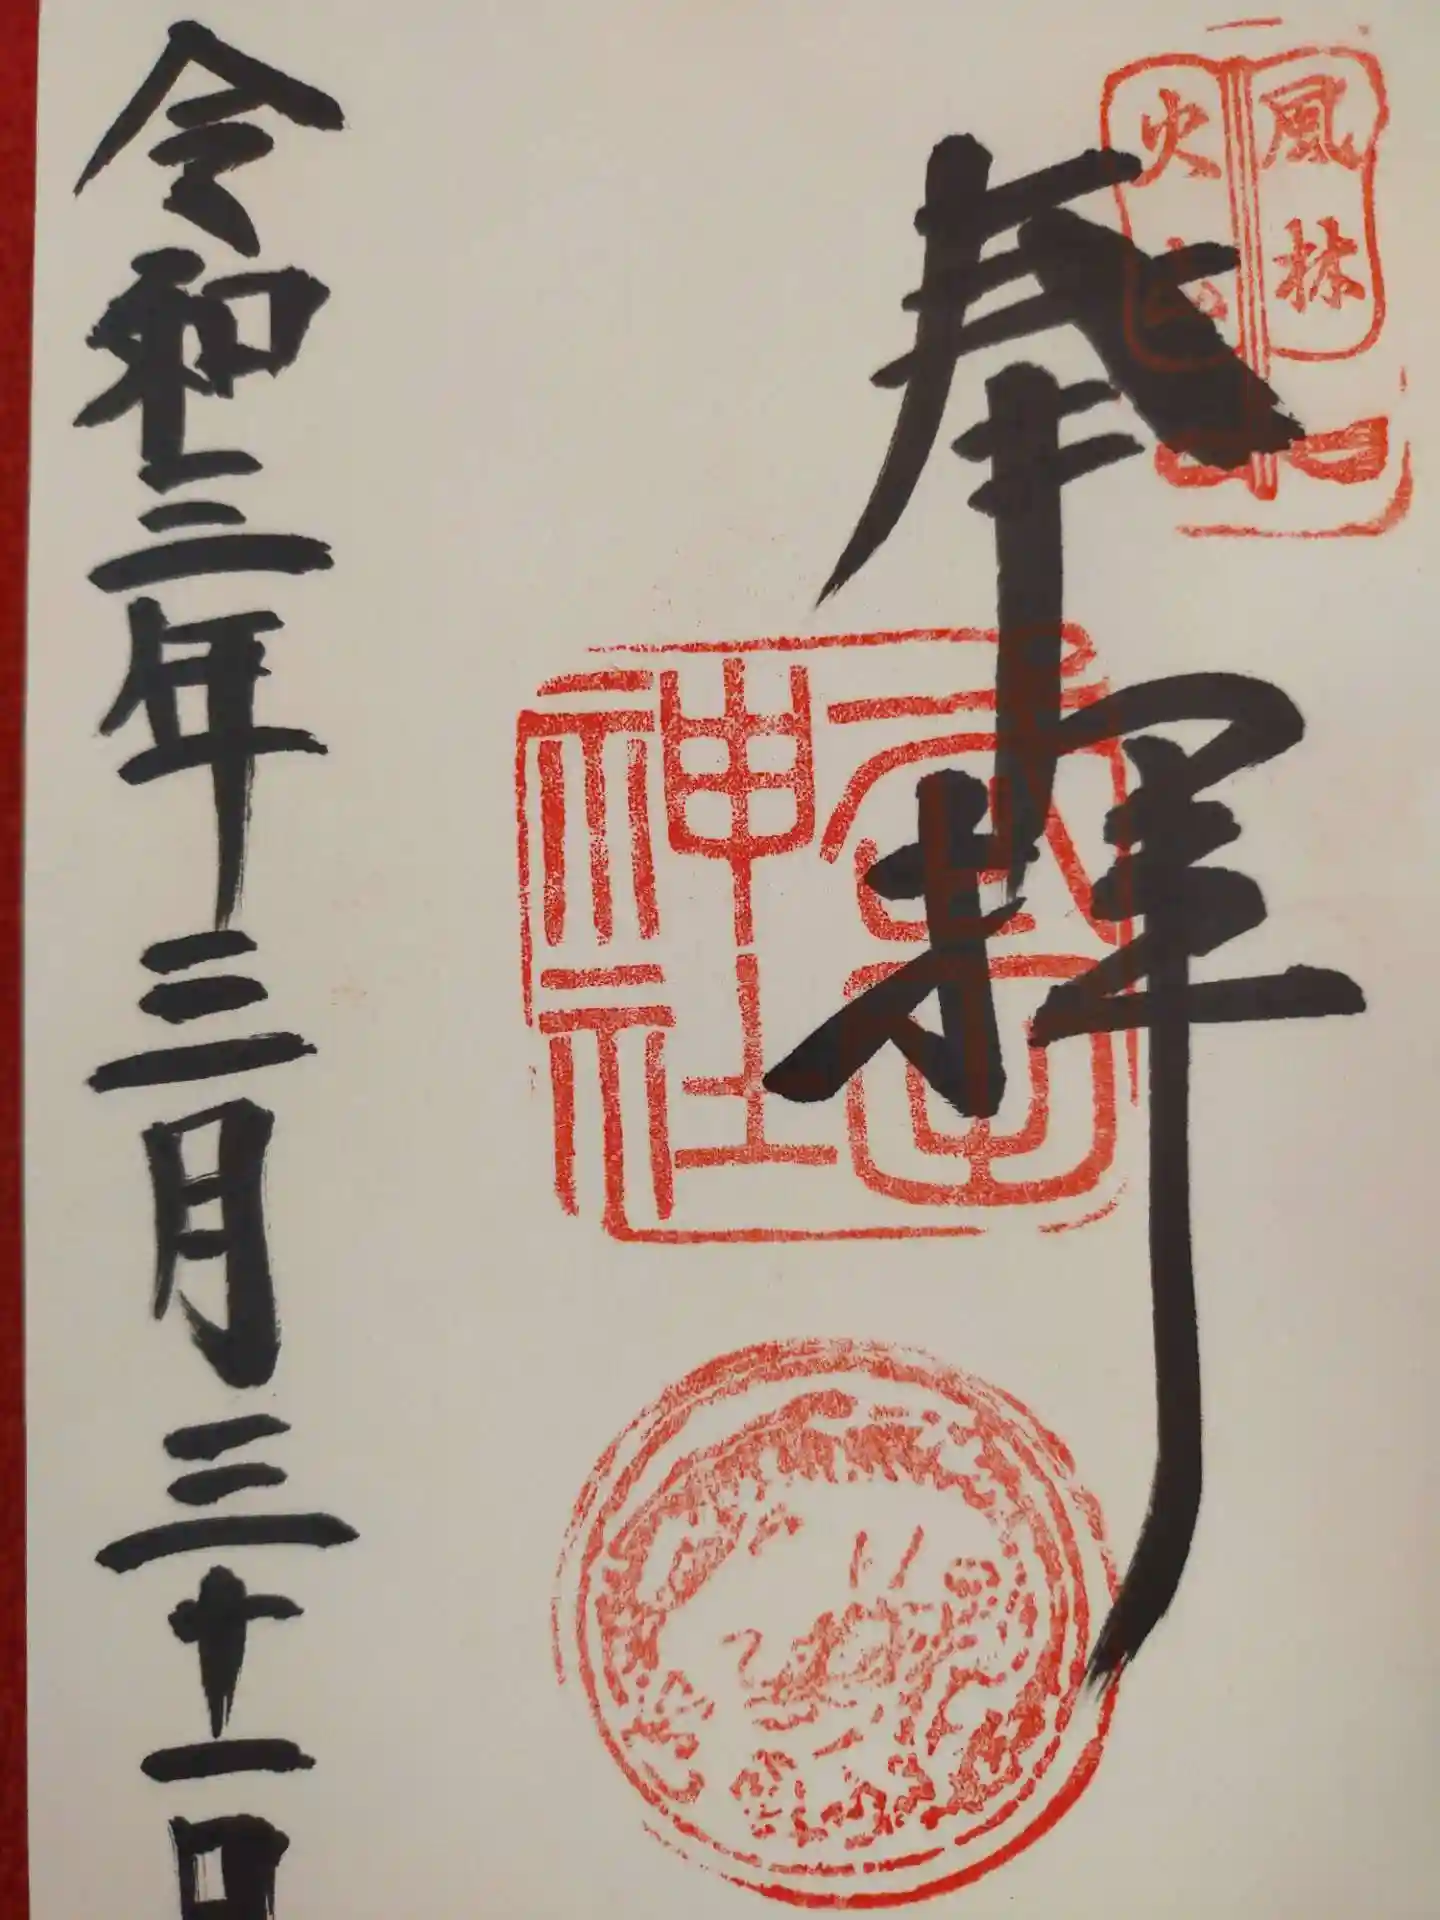 風林
火山
奉拝
武田
神社
令和三年三月三十一日